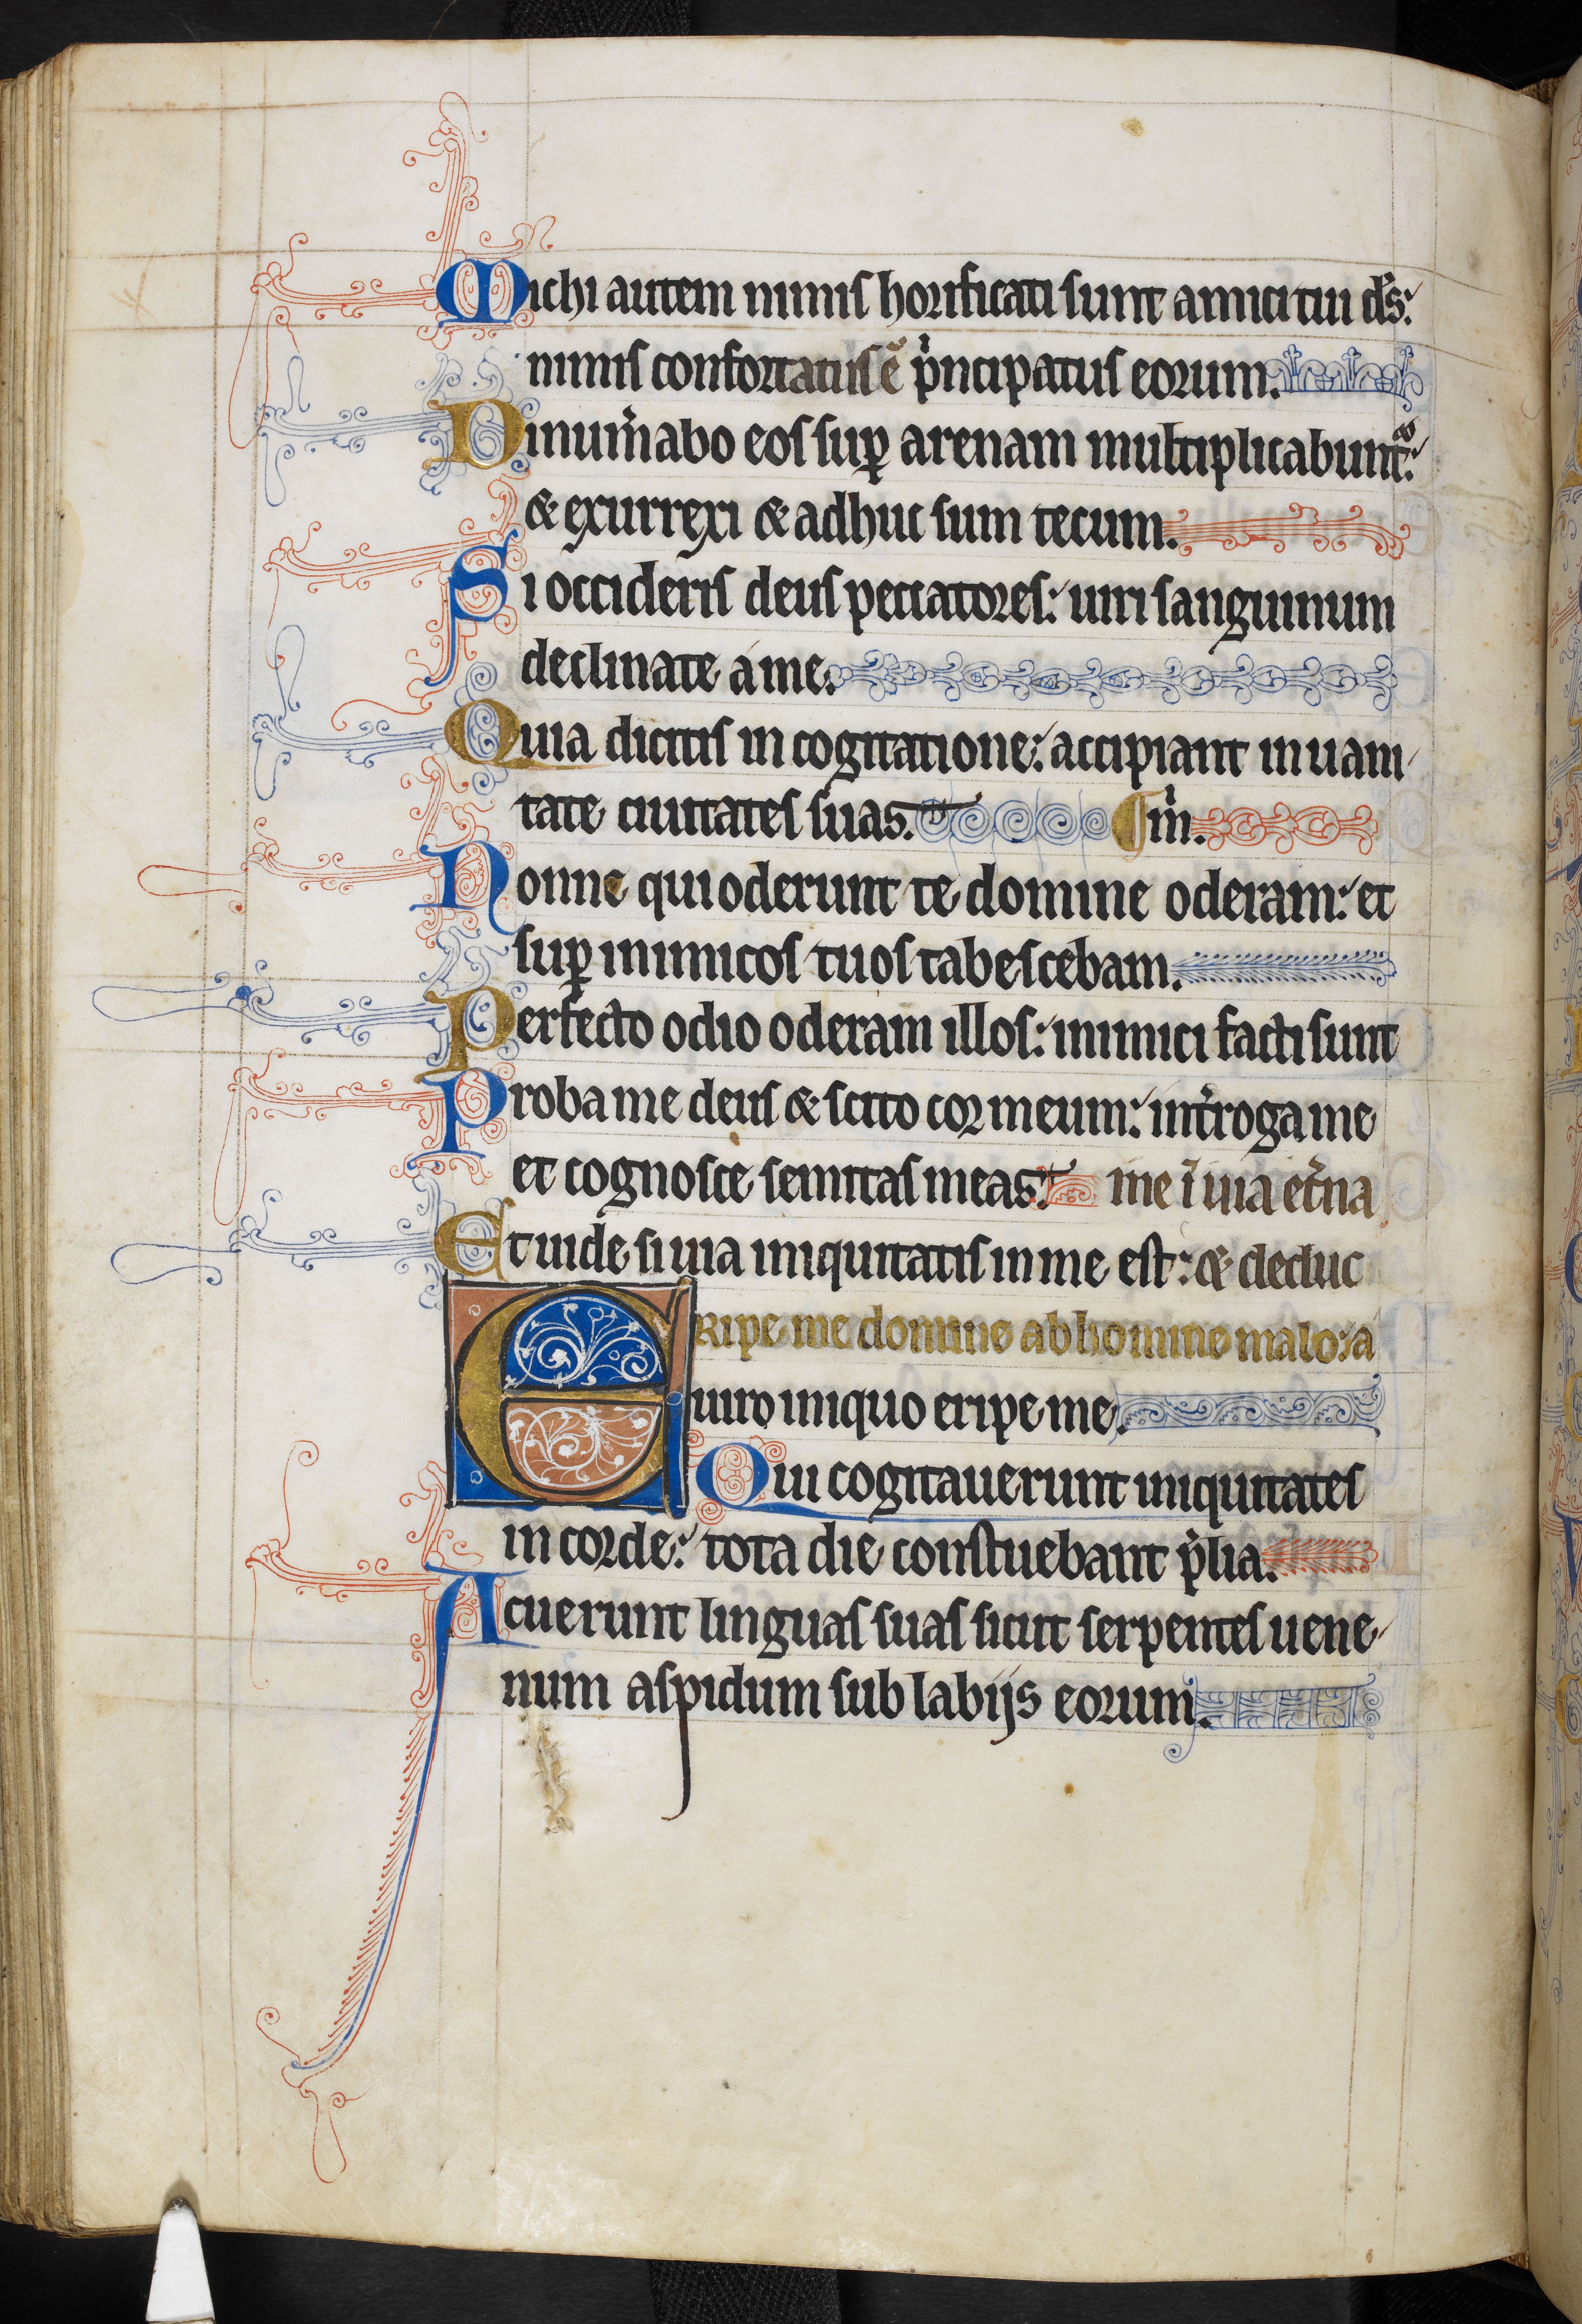 Michi autem nimis honificati sunt amici tui ds̄:
nimis confortatus ē p̍ncipatus eorum.
Dinum̍abo eos suꝑ arenam multiplicabunt᷑:
& exurrexi & adhuc sum tecum.
Si occideris deus peccatores: uiri sanguinum
declinate a me.
Quia dicitis in cogitatione: accipiant in uani
tate ciuitates suas. m̍.
Nonne qui oderunt te domine oderam: et
suꝑ inimicos tuos tabescebam.
Perfecto odio oderam illos: inimici facti sunt m̍.
Proba me deus & scito cor meum: int̍roga me
et cognosce semitas meas. me ī uia et̍na
Et uide si uia iniquitatis in me est: & deduc
Eripe me domine ab homine malo: a
uiro iniquo eripe me.
Qui cogitauerunt iniquitates
in corde: tota die constuebant p̍lia.
Acuerunt linguas suas sicut serpentes uene
num aspidum sub labijs eorum.